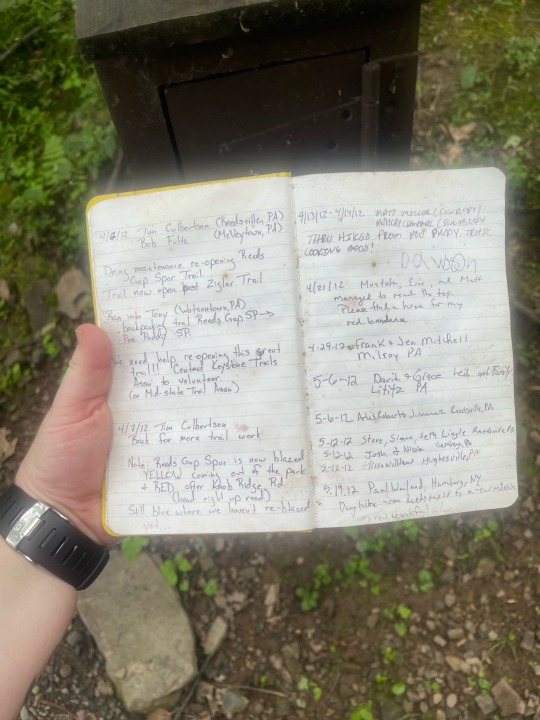 4/6/12 Tim Culbertson (Reedsville, PA)
Bob Fultz (McVeytown, PA)
Doing maintenance re-opening Reeds
Gap Spur Trail.
Trail now open past Zigler Trail
Ran into Tony (Watsontown, PA)
backpacking trail Reeds Gap SP →
Poe Paddy SP.
We need help re-opening this great
trail!! Contact Keystone Trails
Assn to volunteer.
(or Mid-state Trail Assn)
4/7/12 Tim Culbertson
Back for more trail work
Note: Reeds Gap Spur is now blazed
YELLOW coming out of the park
+ RED after Knob Ridge Rd.
(hard right up road)
Still blue where we haven't re-blazed
yet...
4/13/12 - 4/14/12 MATT
THRU HIKED FROM POE PADDY. TRAIL
LOOKING GOOD!
Dawson
4/21/12 Mustafa, Eric, and Matt
managed to reach the top.
Please have for my
red bandana
4-29-12 Frank & Jen Mitchell
Milroy PA
5-6-12 David & Grace
Lititz PA
5-6-12 Roberto Reedsville, PA
5-12-12 Steve, Simon, Seth Lingle PA
5-12-12 Josh & Nicole
5-12-12 Hughesville, PA
5.19.12 Paul Hamburg, NY
Day hike from Reeds Gap SP to